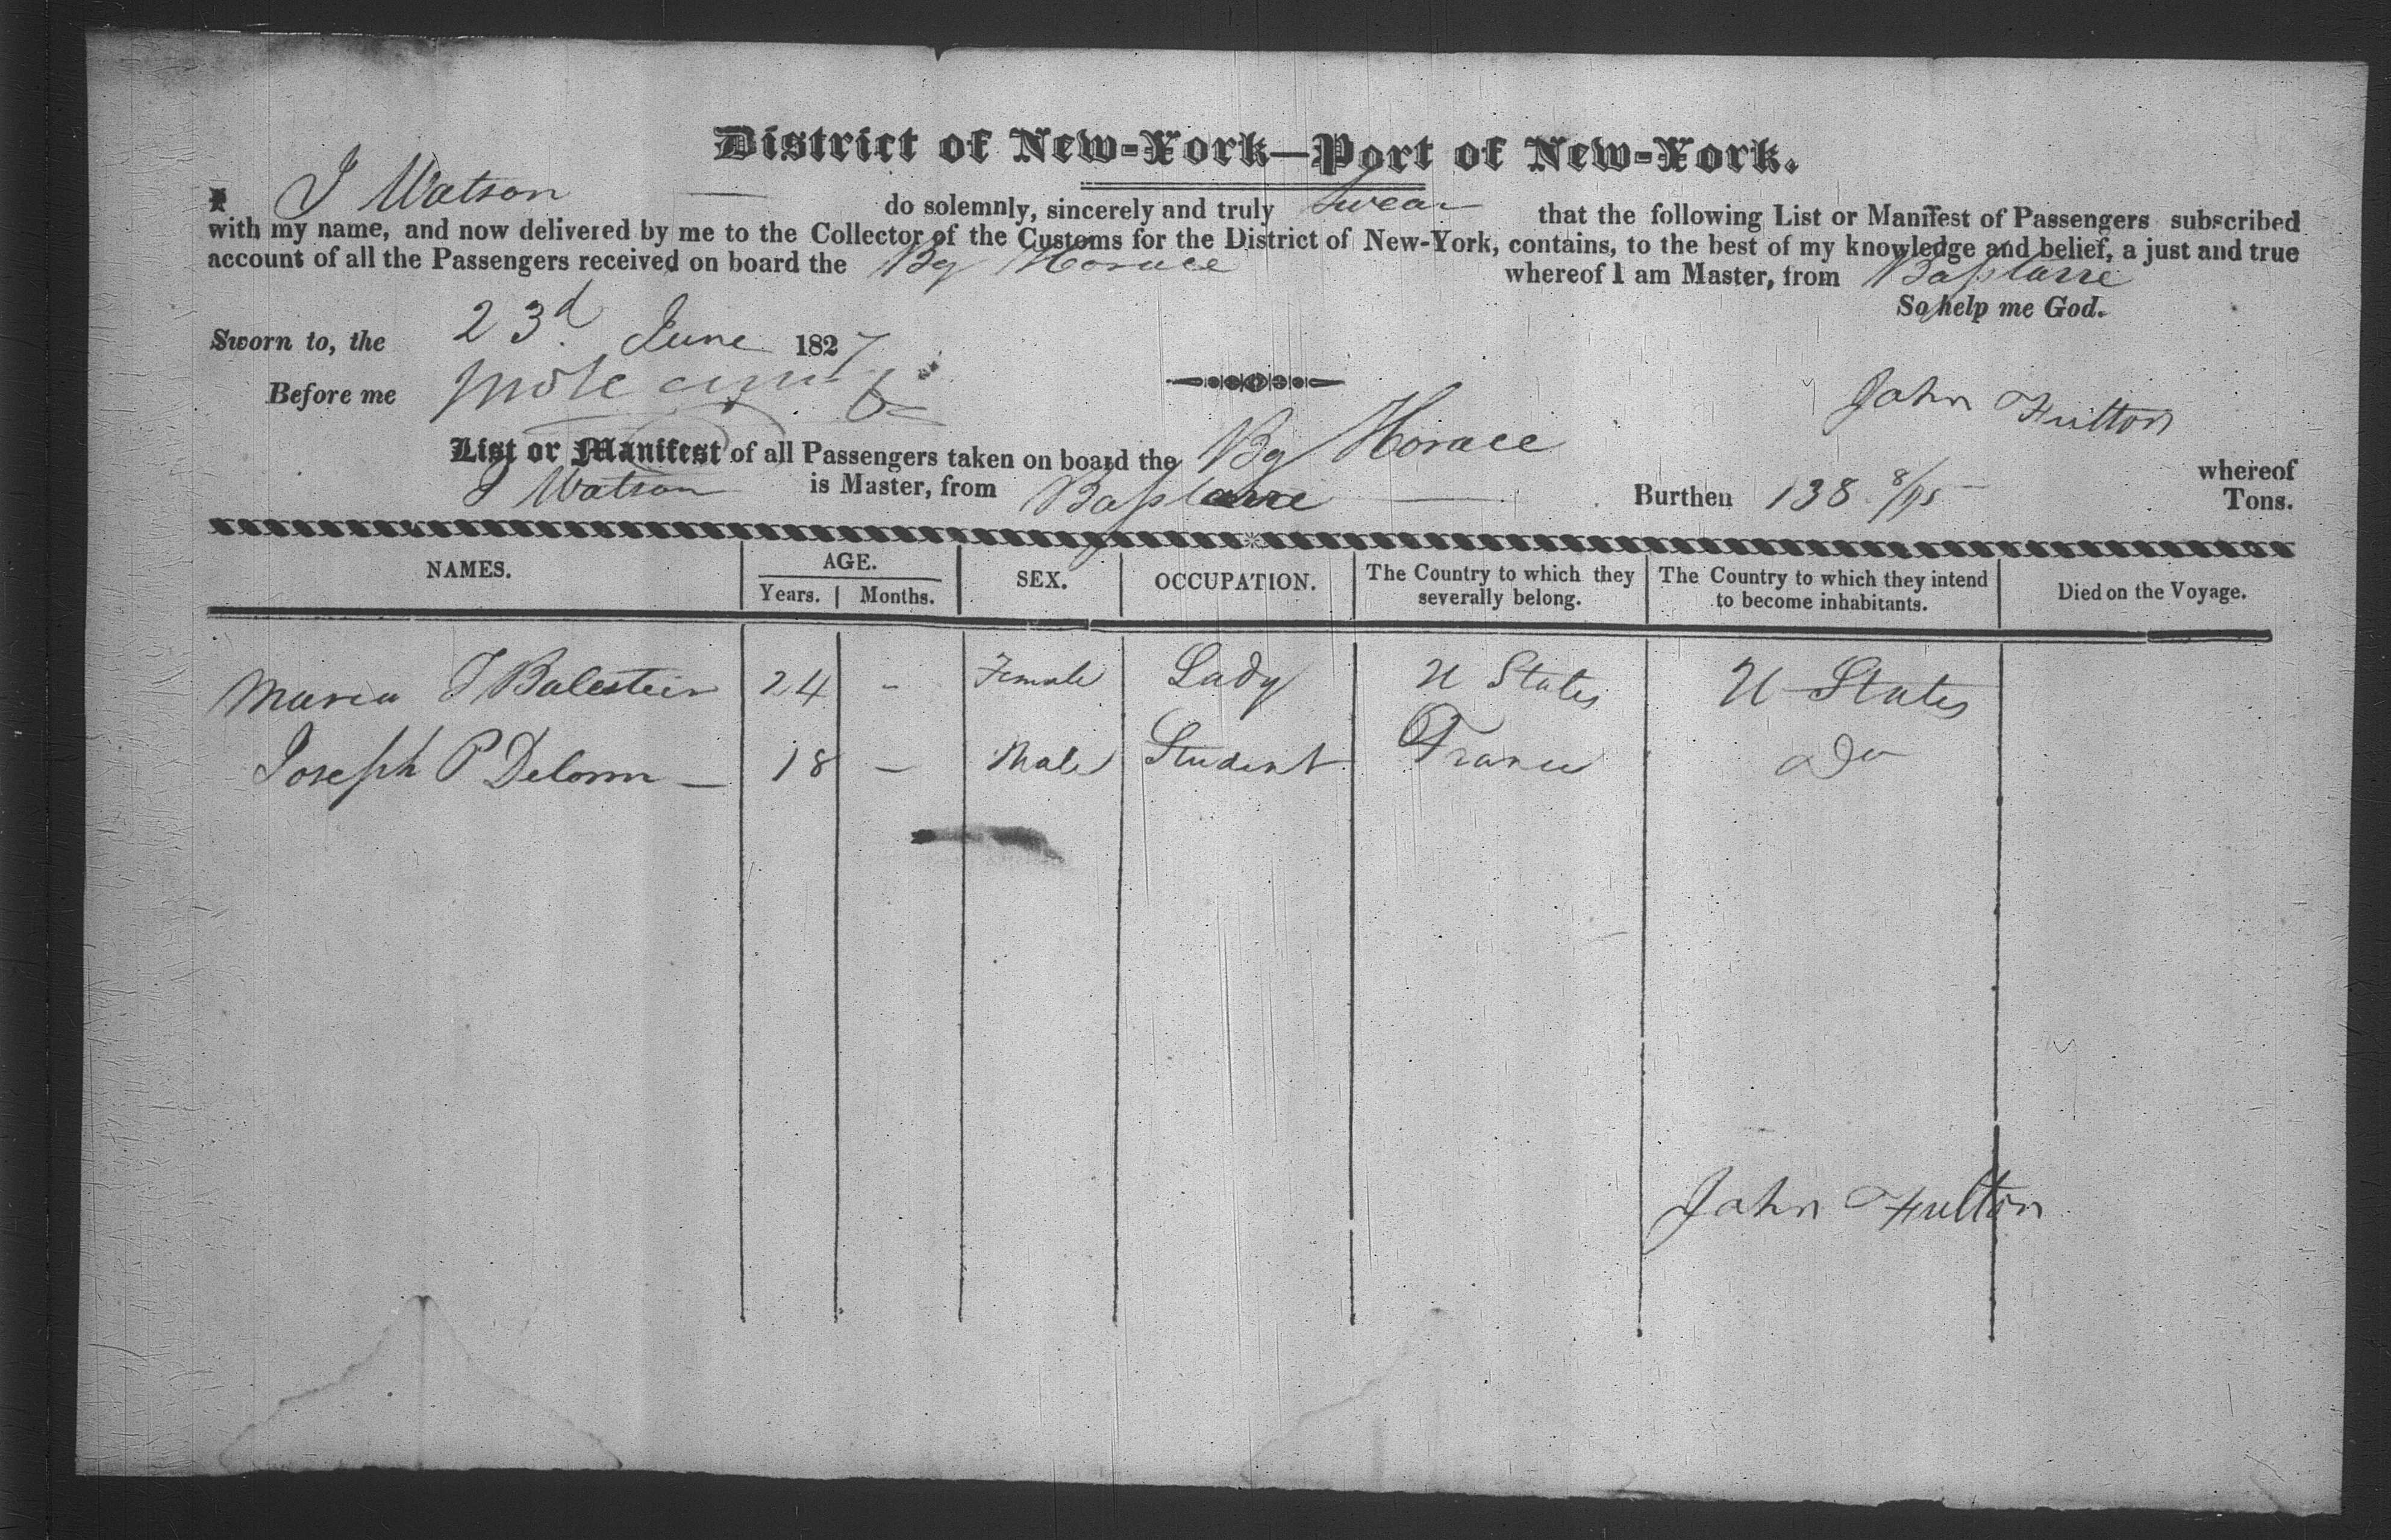 District of New-York—Port of New-York.
I, J Watson do solemnly, sincerely and truly swear that the following List or Manifest of Passengers subscribed
with my name, and now delivered by me to the Collector of the Customs for the District of New-York, contains, to the best of my knowledge and belief, a just and true
account of all the Passengers received on board the Bg Horace whereof I am Master, from Bassterre
So help me God.
Sworn to, the 23d June 1827
Before me
John Fulton
List or Manifest of all Passengers taken on board the Bg Horace whereof
J Watson is Master, from Bassterre Burthen 138 8/95 Tons.
NAMES. AGE. SEX. OCCUPATION. The Country to which they severally belong. The Country to which they intend to become inhabitants. Died on the Voyage.
Years. Months.
Maria J Balestier 24 - Female Lady U States U States
Joseph P Delorm — 18 - Male Student France Do
John Fulton